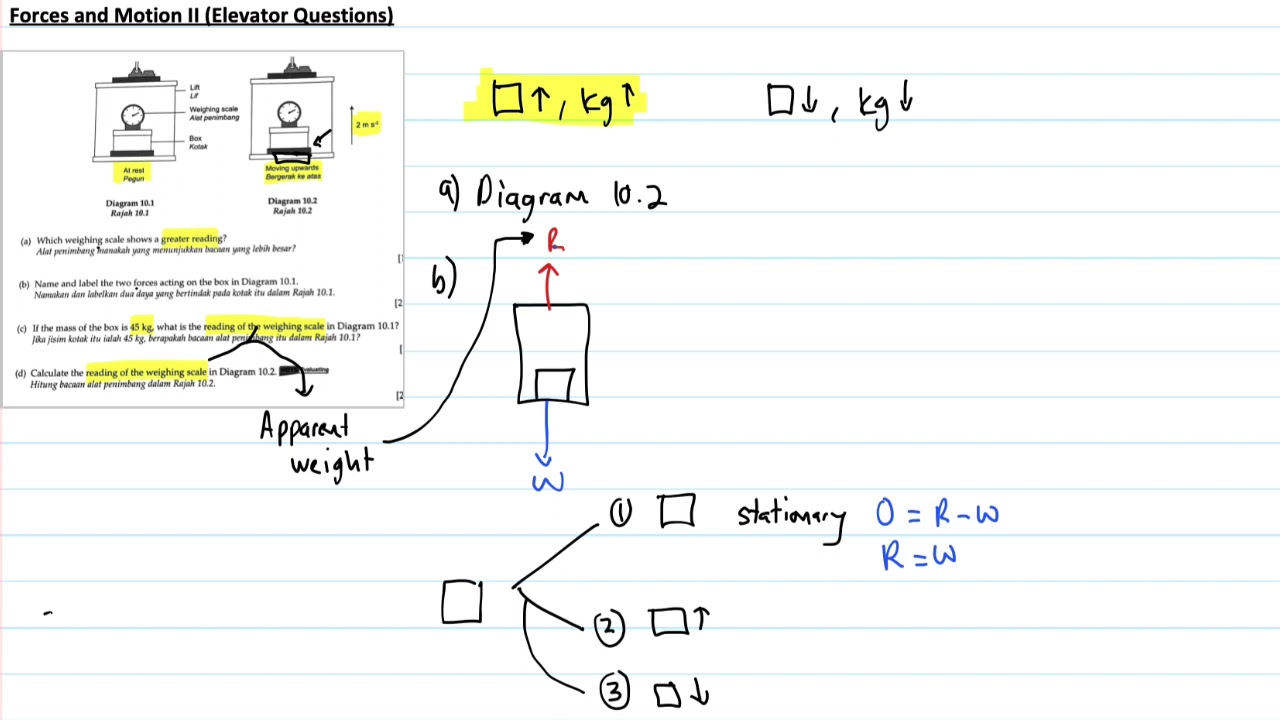 Forces and Motion II (Elevator Questions)
Lift
Lif
Weighing scale
Alat penimbang
Box
Kotak
At rest
Pegun
Diagram 10.1
Rajah 10.1
2 m s⁻²
Moving upwards
Bergerak ke atas
Diagram 10.2
Rajah 10.2
(a) Which weighing scale shows a greater reading?
Alat penimbang manakah yang menunjukkan bacaan yang lebih besar?
[1
(b) Name and label the two forces acting on the box in Diagram 10.1.
Namakan dan labelkan dua daya yang bertindak pada kotak itu dalam Rajah 10.1.
[2
(c) If the mass of the box is 45 kg, what is the reading of the weighing scale in Diagram 10.1?
Jika jisim kotak itu ialah 45 kg, berapakah bacaan alat penimbang itu dalam Rajah 10.1?
[
(d) Calculate the reading of the weighing scale in Diagram 10.2.
Hitung bacaan alat penimbang dalam Rajah 10.2.
[2
Apparent
weight
□↑, kg↑
□↓, kg↓
a) Diagram 10.2
b)
R
W
① □ stationary 0 = R-W
R = W
② □↑
③ □↓